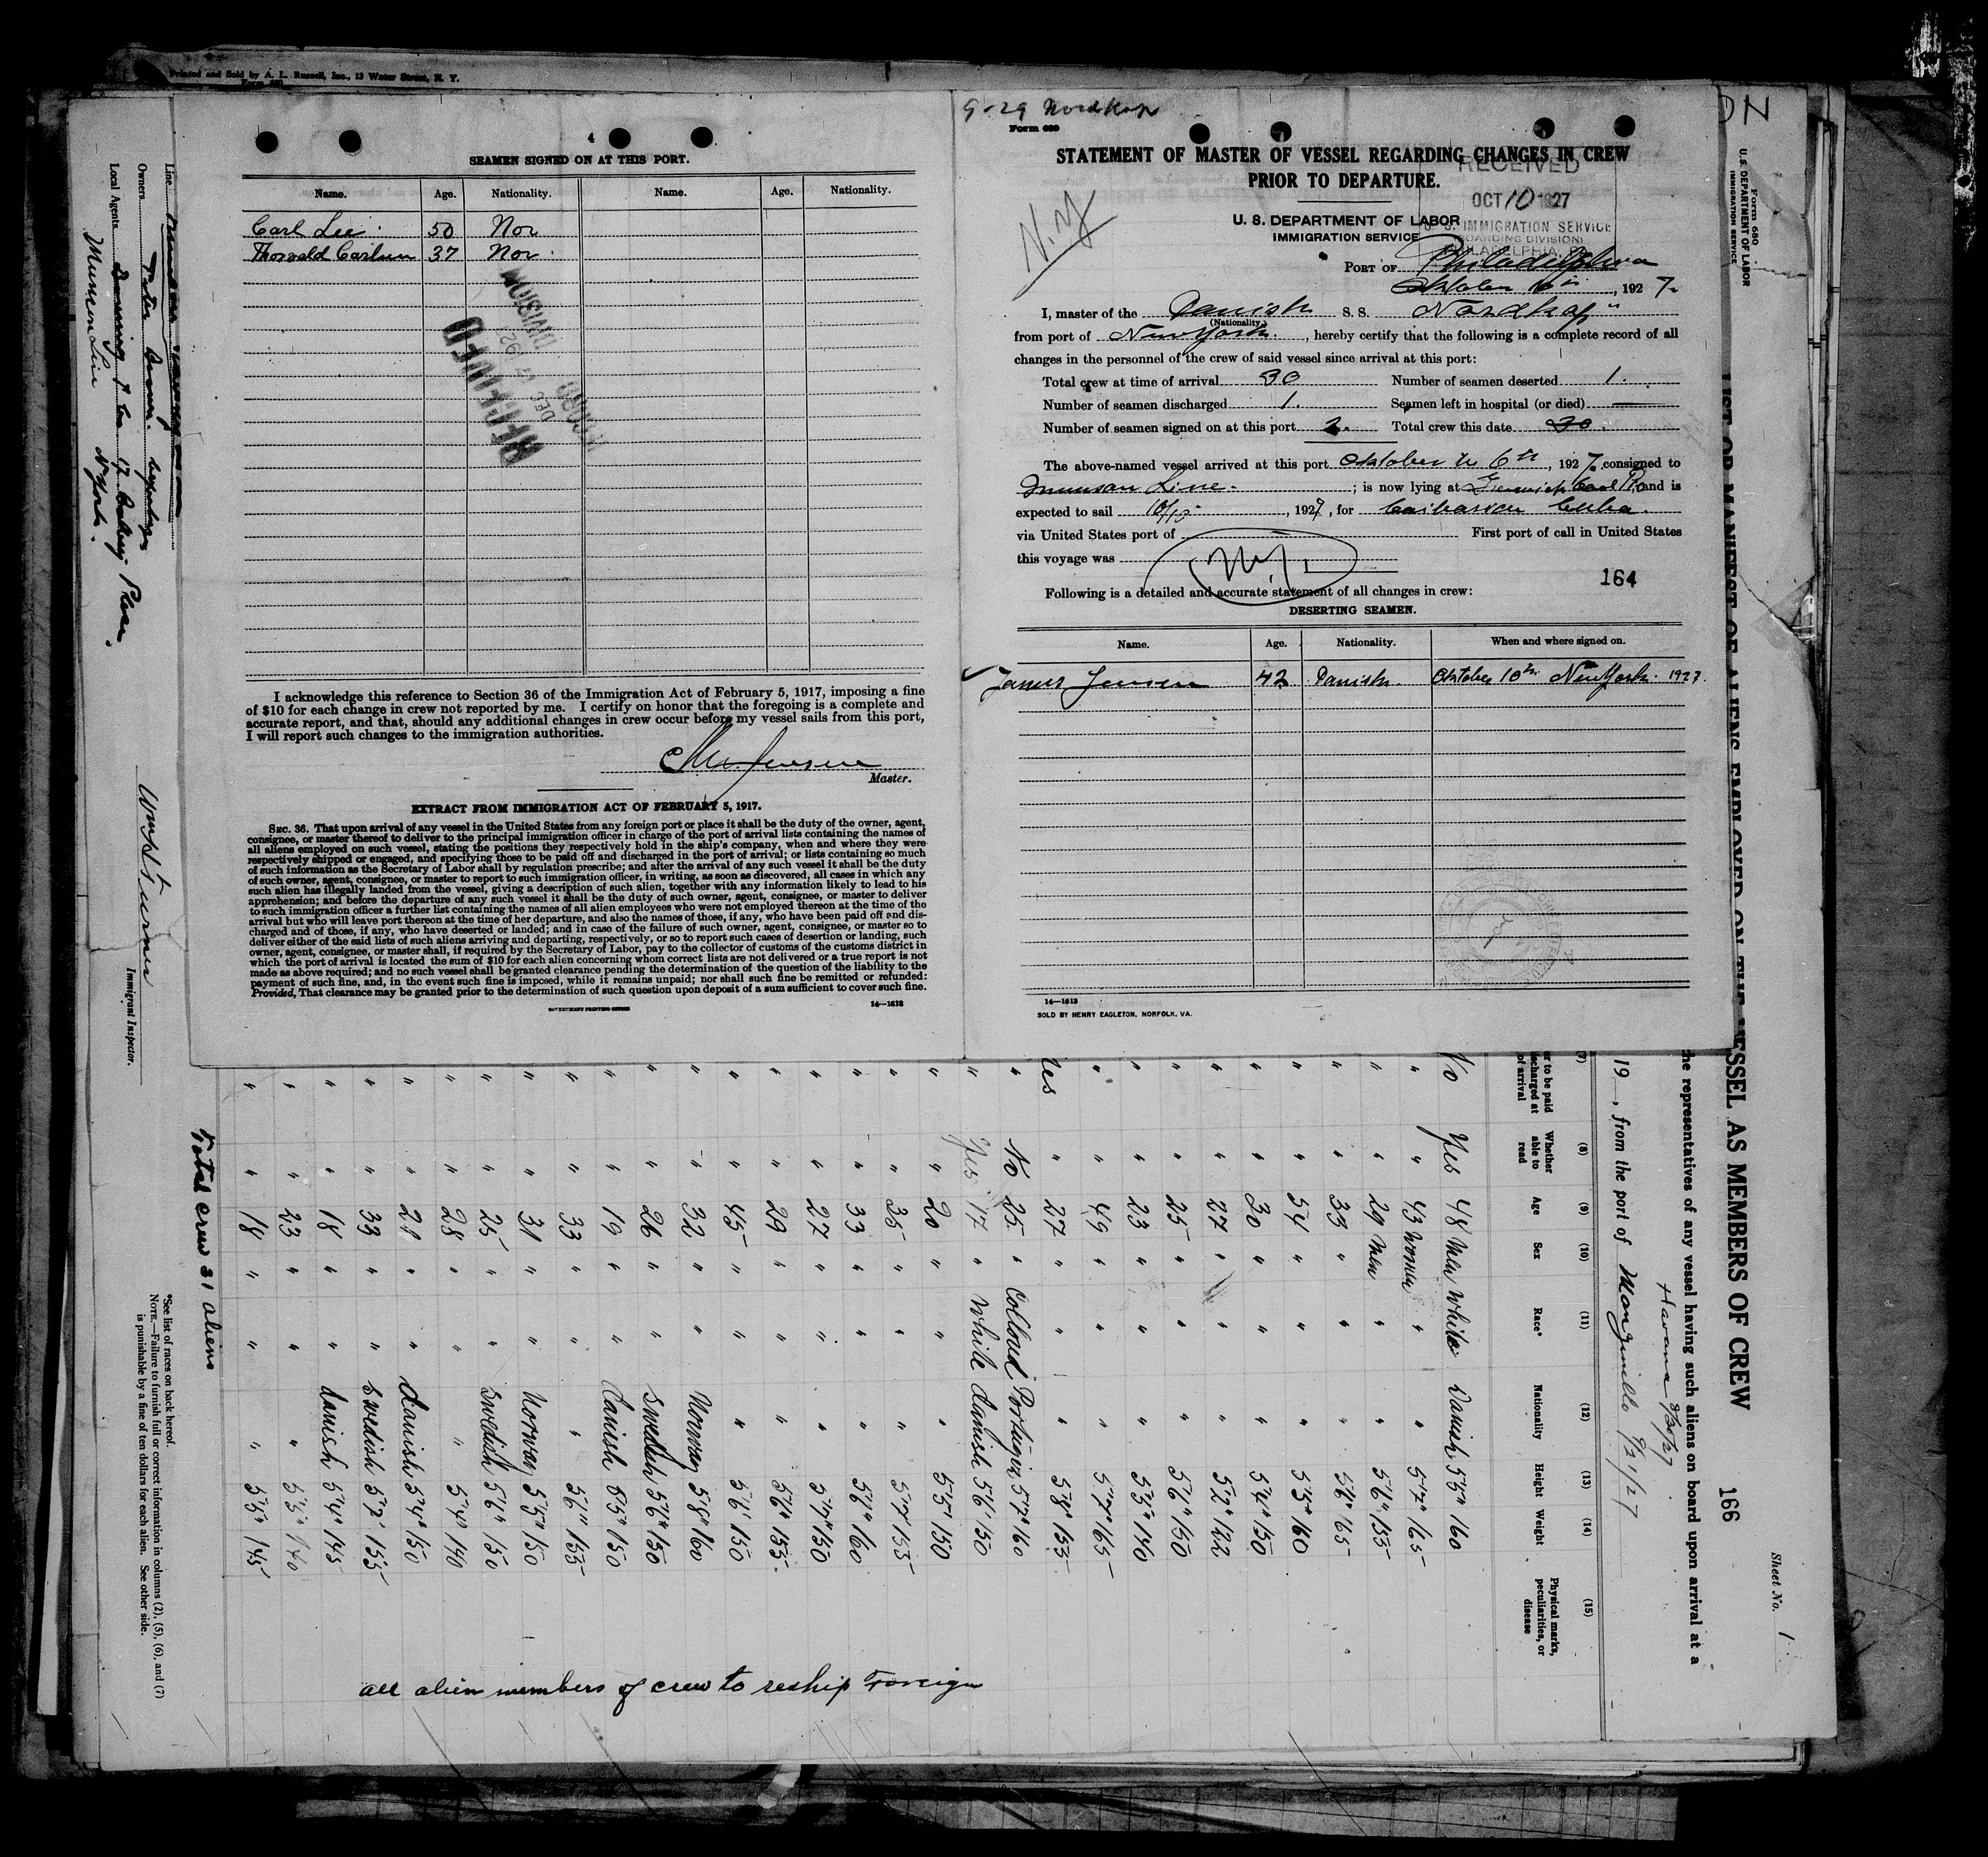 Printed and Sold by A. L. Russell, Inc., 13 Water Street, N. Y.
Form 680
4
SEAMEN SIGNED ON AT THIS PORT.
Name. Age. Nationality. Name. Age. Nationality.
Carl Lee 50 Nor
Thorvald Carlsen 37 Nor
I acknowledge this reference to Section 36 of the Immigration Act of February 5, 1917, imposing a fine
of $10 for each change in crew not reported by me. I certify on honor that the foregoing is a complete and
accurate report, and that, should any additional changes in crew occur before my vessel sails from this port,
I will report such changes to the immigration authorities.
Jensen
Master.
EXTRACT FROM IMMIGRATION ACT OF FEBRUARY 5, 1917.
SEC. 36. That upon arrival of any vessel in the United States from any foreign port or place it shall be the duty of the owner, agent,
consignee, or master thereof to deliver to the principal immigration officer in charge of the port of arrival lists containing the names of
all aliens employed on such vessel, stating the positions they respectively hold in the ship's company, when and where they were
respectively shipped or engaged, and specifying those to be paid off and discharged in the port of arrival; or lists containing so much
of such information as the Secretary of Labor shall by regulation prescribe; and after the arrival of any such vessel it shall be the duty
of such owner, agent, consignee, or master to report to such immigration officer, in writing, as soon as discovered, all cases in which any
such alien has illegally landed from the vessel, giving a description of such alien, together with any information likely to lead to his
apprehension; and before the departure of any such vessel it shall be the duty of such owner, agent, consignee, or master to deliver
to such immigration officer a further list containing the names of all alien employees who were not employed thereon at the time of the
arrival but who will leave port thereon at the time of her departure, and also the names of those, if any, who have been paid off and dis-
charged and of those, if any, who have deserted or landed; and in case of the failure of such owner, agent, consignee, or master so to
deliver either of the said lists of such aliens arriving and departing, respectively, or so to report such cases of desertion or landing, such
owner, agent, consignee, or master shall, if required by the Secretary of Labor, pay to the collector of customs of the customs district in
which the port of arrival is located the sum of $10 for each alien concerning whom correct lists are not delivered or a true report is not
made as above required; and no such vessel shall be granted clearance pending the determination of the question of the liability to the
payment of such fine, and, in the event such fine is imposed, while it remains unpaid; nor shall such fine be remitted or refunded:
Provided, That clearance may be granted prior to the determination of such question upon deposit of a sum sufficient to cover such fine.
GOVERNMENT PRINTING OFFICE
14—1613
9-29 Nordkap
Form 689
STATEMENT OF MASTER OF VESSEL REGARDING CHANGES IN CREW
PRIOR TO DEPARTURE.
RECEIVED
OCT 10 1927
U. S. IMMIGRATION SERVICE
(BOARDING DIVISION)
PHILADELPHIA, PA.
N.Y
U. S. DEPARTMENT OF LABOR
IMMIGRATION SERVICE
PORT OF Philadelphia
Oktober 10th, 1927
I, master of the Danish S. S. Nordkap"
(Nationality)
from port of New York, hereby certify that the following is a complete record of all
changes in the personnel of the crew of said vessel since arrival at this port:
Total crew at time of arrival 30 Number of seamen deserted 1.
Number of seamen discharged 1. Seamen left in hospital (or died) —
Number of seamen signed on at this port 2. Total crew this date 30.
The above-named vessel arrived at this port Oktober 6th, 1927, consigned to
Munson Line. ; is now lying at Greenwich Coal and is
expected to sail 10/10, 1927, for Caibarien Cuba.
via United States port of First port of call in United States
this voyage was N.Y.
164
Following is a detailed and accurate statement of all changes in crew:
DESERTING SEAMEN.
Name. Age. Nationality. When and where signed on.
James Jensen 42 Danish Oktober 10th New York 1927
14—1613
SOLD BY HENRY EAGLETON, NORFOLK, VA.
Form 680
U. S. DEPARTMENT OF LABOR
IMMIGRATION SERVICE
LIST OR MANIFEST OF ALIENS EMPLOYED ON THE VESSEL AS MEMBERS OF CREW
166
Sheet No. 1
the representatives of any vessel having such aliens on board upon arrival at a
Havana 9/30/27
19 , from the port of Manzanillo 9/21/27
(7) (8) (9) (10) (11) (12) (13) (14) (15)
Whether able to read Age Sex Race* Nationality Height Weight Physical marks, peculiarities, or disease
No Yes 48 Men White Danish 5'5" 160
" " 43 Women " " 5'7" 165
" " 29 Men " " 5'6" 155
" " 33 " " " 5'6" 165
" " 54 " " " 5'5" 160
" " 30 " " " 5'4" 150
" " 27 " " " 5'2" 122
" " 25 " " " 5'6" 150
" " 23 " " " 5'5" 140
" " 49 " " " 5'7" 165
Yes " 27 " " " 5'8" 155
" No 25 " Colloud Portugise 5'7" 160
" Yes 17 " White Danish 5'6" 150
" " 20 " " " 5'5" 150
" " 35 " " " 5'7" 155
" " 33 " " " 5'6" 160
" " 27 " " " 5'7" 150
" " 29 " " " 5'6" 155
" " 45 " " " 5'6" 150
" " 32 " " Norway 5'8" 160
" " 26 " " Swedish 5'6" 150
" " 19 " " Danish 5'5" 150
" " 33 " " " 5'6" 155
" " 31 " " Norway 5'5" 150
" " 25 " " Swedish 5'6" 150
" " 28 " " " 5'4" 140
" " 21 " " Danish 5'4" 150
" " 33 " " Swedish 5'7" 155
" " 18 " " Danish 5'4" 145
" " 23 " " " 5'5" 140
" " 18 " " " 5'5" 145
all alien members of crew to reship Foreign
Total crew 31 aliens
*See list of races on back hereof.
NOTE.—Failure to furnish full or correct information in columns (2), (5), (6), and (7)
is punishable by a fine of ten dollars for each alien. See other side.
Line
Owners
Local Agents 17 Battery Place.
Munson Line N York.
Immigrant Inspector.